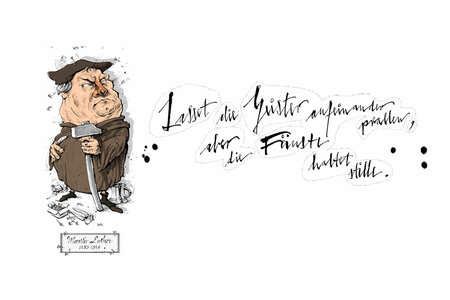 Lasset die Geister aufeinander
prallen,
aber
die Fäuste
haltet
stille.
Martin Luther
1483-1546